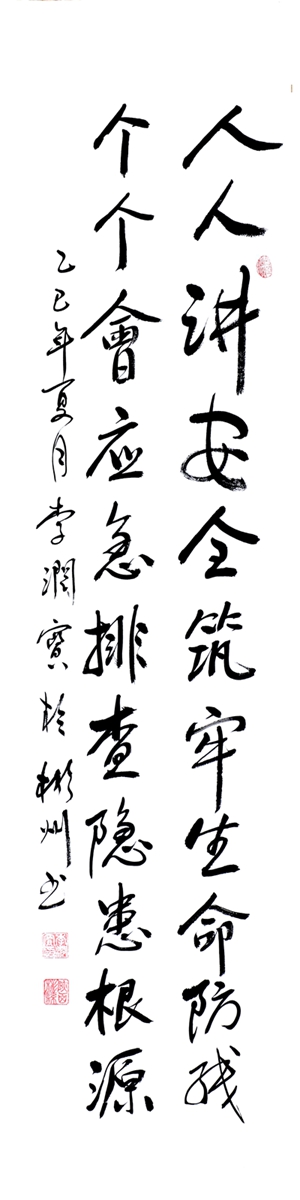 人人讲安全筑牢生命防线
个个會应急排查隐患根源
乙巳年夏月李润寳於彬州书